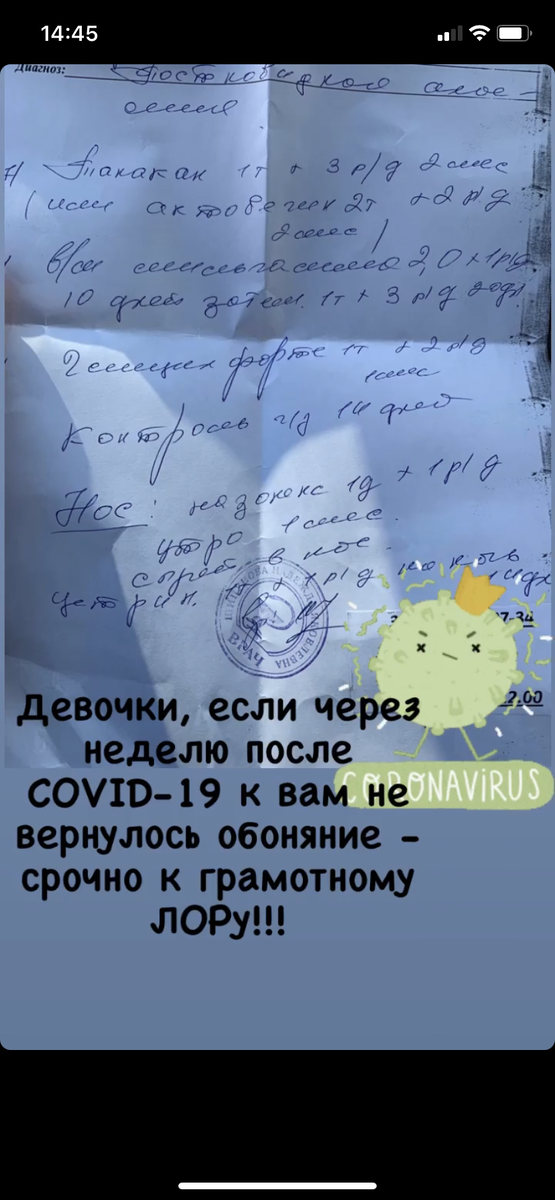 14:45
Диагноз: Постковидная анос-
мия
Танакан 1т × 3 р/д 2 мес
(или актовегин 2т × 2 р/д
2 мес)
в/м мильгамма 2,0 × 1 р/д
10 дней затем 1т × 3 р/д
форте 1т × 2 р/д
1 мес
Контроль ч/з 14 дней
Нос: назонекс 1д × 1 р/д
утро 1 мес.
в нос.
Цетрин 1 р/д
ВРАЧ
CORONAVIRUS
Девочки, если через
неделю после
COVID-19 к вам не
вернулось обоняние -
срочно к грамотному
ЛОРу!!!